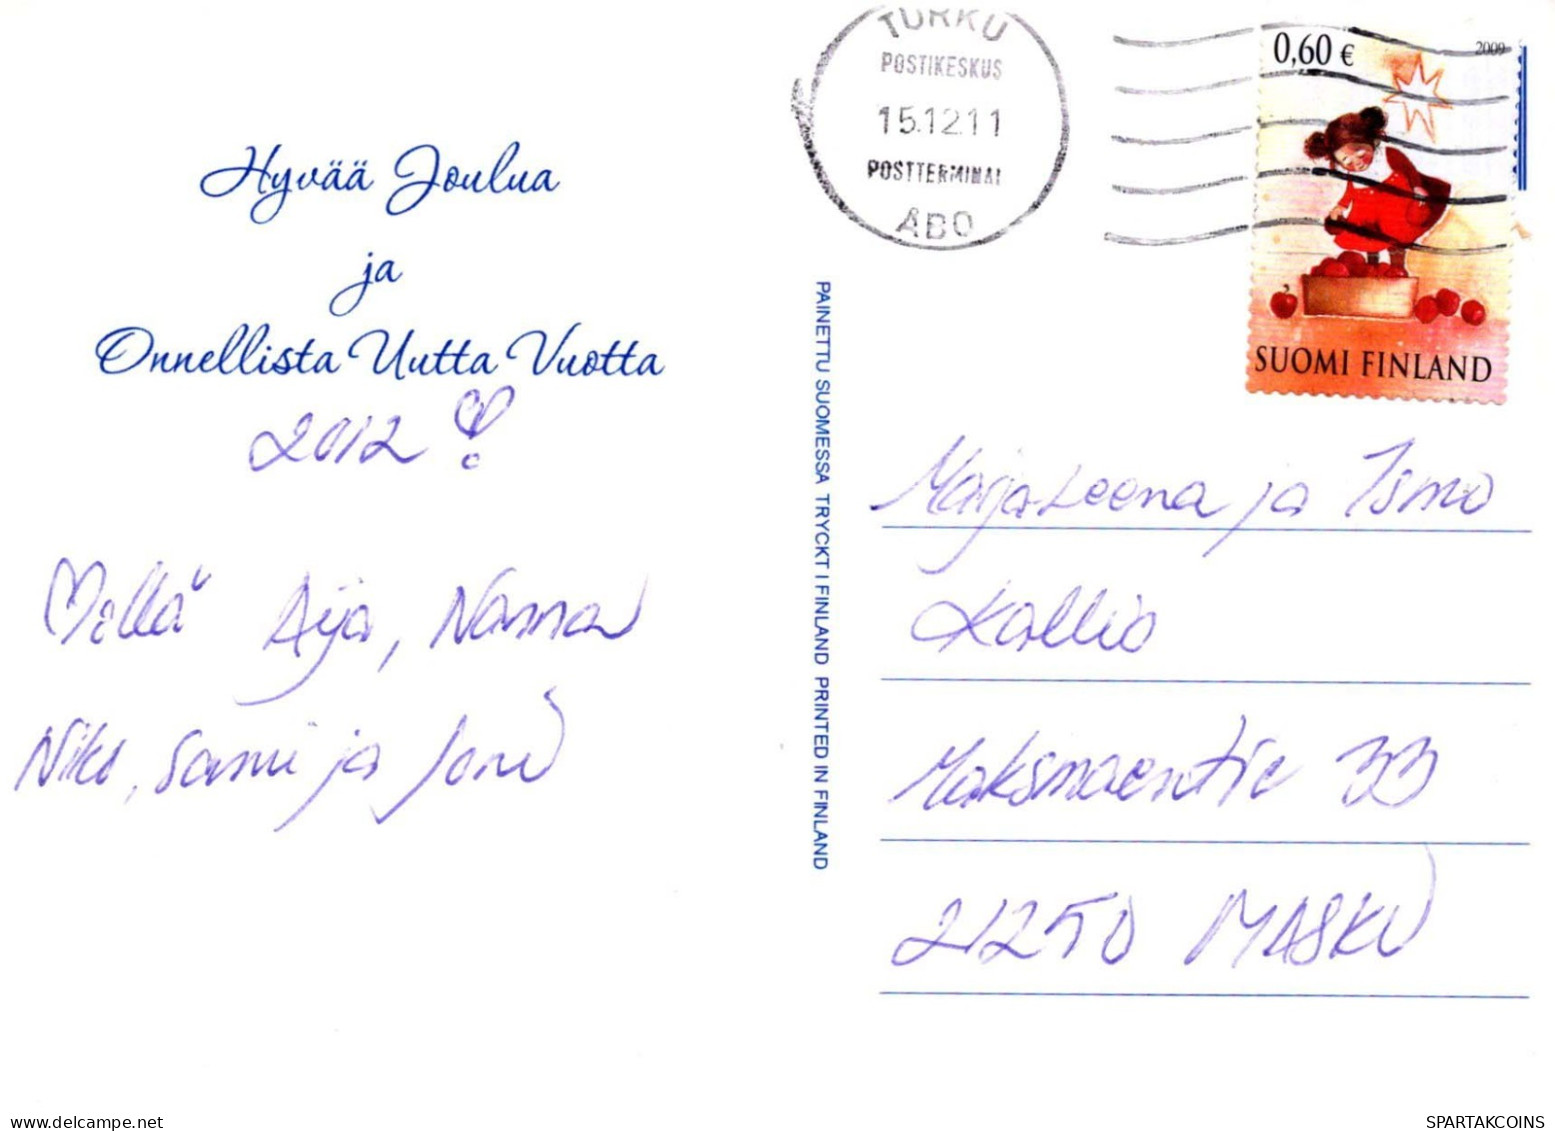 Hyvää Joulua
ja
Onnellista Uutta Vuotta
2012
Aija, Nanna
Niko, Sami ja Joni
PAINETTU SUOMESSA TRYCKT I FINLAND PRINTED IN FINLAND
TURKU
POSTIKESKUS
15.12.11
POSTTERMINAL
ÅBO
0,60 €
2009
SUOMI FINLAND
Marja-Leena ja Ismo
Kallio
Maksmaentie 33
21250 MASKU
delcampe.net
SPARTAKCOINS